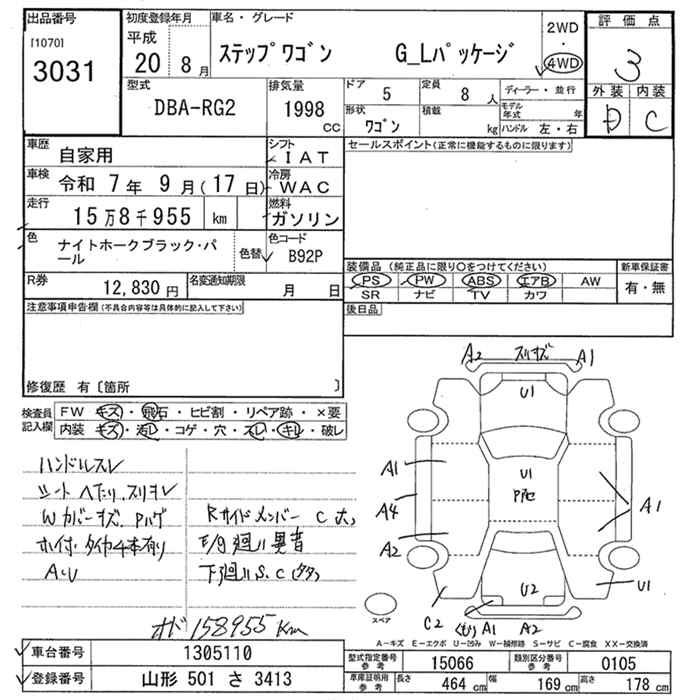 出品番号
[1070]
3031
初度登録年月
平成
20 8月
車名・グレード
ステップワゴン G_Lパッケージ
2WD
・
4WD
評価点
3
外装 内装
D C
型式
DBA-RG2
排気量
1998
CC
ドア
5
定員
8人
形状
ワゴン
積載
kg
ディーラー・並行
モデル年式 年
ハンドル 左・右
車歴
自家用
シフト
IAT
車検
令和 7年 9月(17日)
冷房
WAC
走行
15万8千955 km
燃料
ガソリン
色
ナイトホークブラック・パール
色替
色コード
B92P
R券
12,830円
名変通知期限
月 日
セールスポイント(正常に機能するものに限ります)
装備品 (純正品に限り○をつけてください)
PS PW ABS エアB AW
SR ナビ TV カワ
新車保証書
有・無
後日品
注意事項申告欄(不具合内容等は具体的に記入して下さい)
修復歴 有〔箇所 〕
検査員記入欄
FW キズ・飛石・ヒビ割・リペア跡・×要
内装 キズ・汚レ・コゲ・穴・スレ・キレ・破レ
ハンドルスレ
シート ヘタリ、スリキレ
Wカバーキズ、Pハゲ
ホイ付タイヤ4本有り
Rサイドメンバー C大
下廻りS.C(多多)
オド158955Km
A2 スリキズ A1
U1
A1
U1
A4
A1
A2
U2
U1
C2
A1 A2
スペア
A-キズ E-エクボ U-凹み W-補修跡 S-サビ C-腐食 XX-交換済
車台番号
1305110
登録番号
山形 501 さ 3413
型式指定番号
参考
15066
類別区分番号
参考
0105
車庫証明用
参考
長さ 464cm 幅 169cm 高さ 178cm